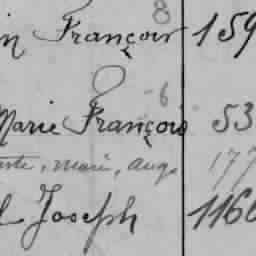 8
in François 159
6
Marie François 53
, marie, Aug. 177
l Joseph 1166